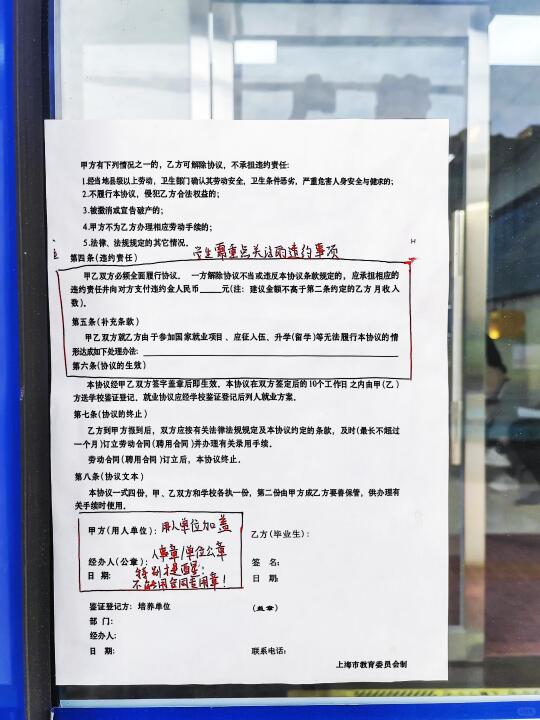 甲方有下列情况之一的，乙方可解除协议，不承担违约责任：
1.经当地县级以上劳动，卫生部门确认其劳动安全，卫生条件恶劣，严重危害人身安全与健求的；
2.不履行本协议，侵犯乙方合法权益的；
3.被撤消或宣告破产的；
4.甲方不为乙方办理相应劳动手续的；
5.法律、法规规定的其它情况。
学生需重点关注的违约事项
第四条(违约责任)
甲乙双方必须全面履行协议。一方解除协议不当或违反本协议条款规定的，应承担相应的
违约责任并向对方支付违约金人民币_____元(注：建议金额不高于第二条约定的乙方月收入
数)。
第五条(补充条款)
甲乙双方就乙方由于参加国家就业项目、应征入伍、升学(留学)等无法履行本协议的情
形达成如下处理办法：
第六条(协议的生效)
本协议经甲乙双方签字盖章后即生效。本协议在双方签定后的10个工作日之内由甲(乙)
方送学校鉴证登记。就业协议应经学校鉴证登记后列人就业方案。
第七条(协议的终止)
乙方到甲方报到后，双方应按有关法律法规规定及本协议约定的条款，及时(最长不超过
一个月)订立劳动合同(聘用合同)并办理有关录用手续。
劳动合同(聘用合同)订立后，本协议终止。
第八条(协议文本)
本协议一式四份，甲、乙双方和学校各执一份，第二份由甲方成乙方要善保管，供办理有
关手续时使用。
甲方(用人单位)：用人单位加盖
乙方(毕业生)：
经办人(公章)：人事章/单位公章
签 名：
日 期：特别提醒：
日 期：
不能用合同专用章！
鉴证登记方：培养单位
(盖章)
部 门：
经办人：
日 期：
联系电话：
上海市教育委员会制